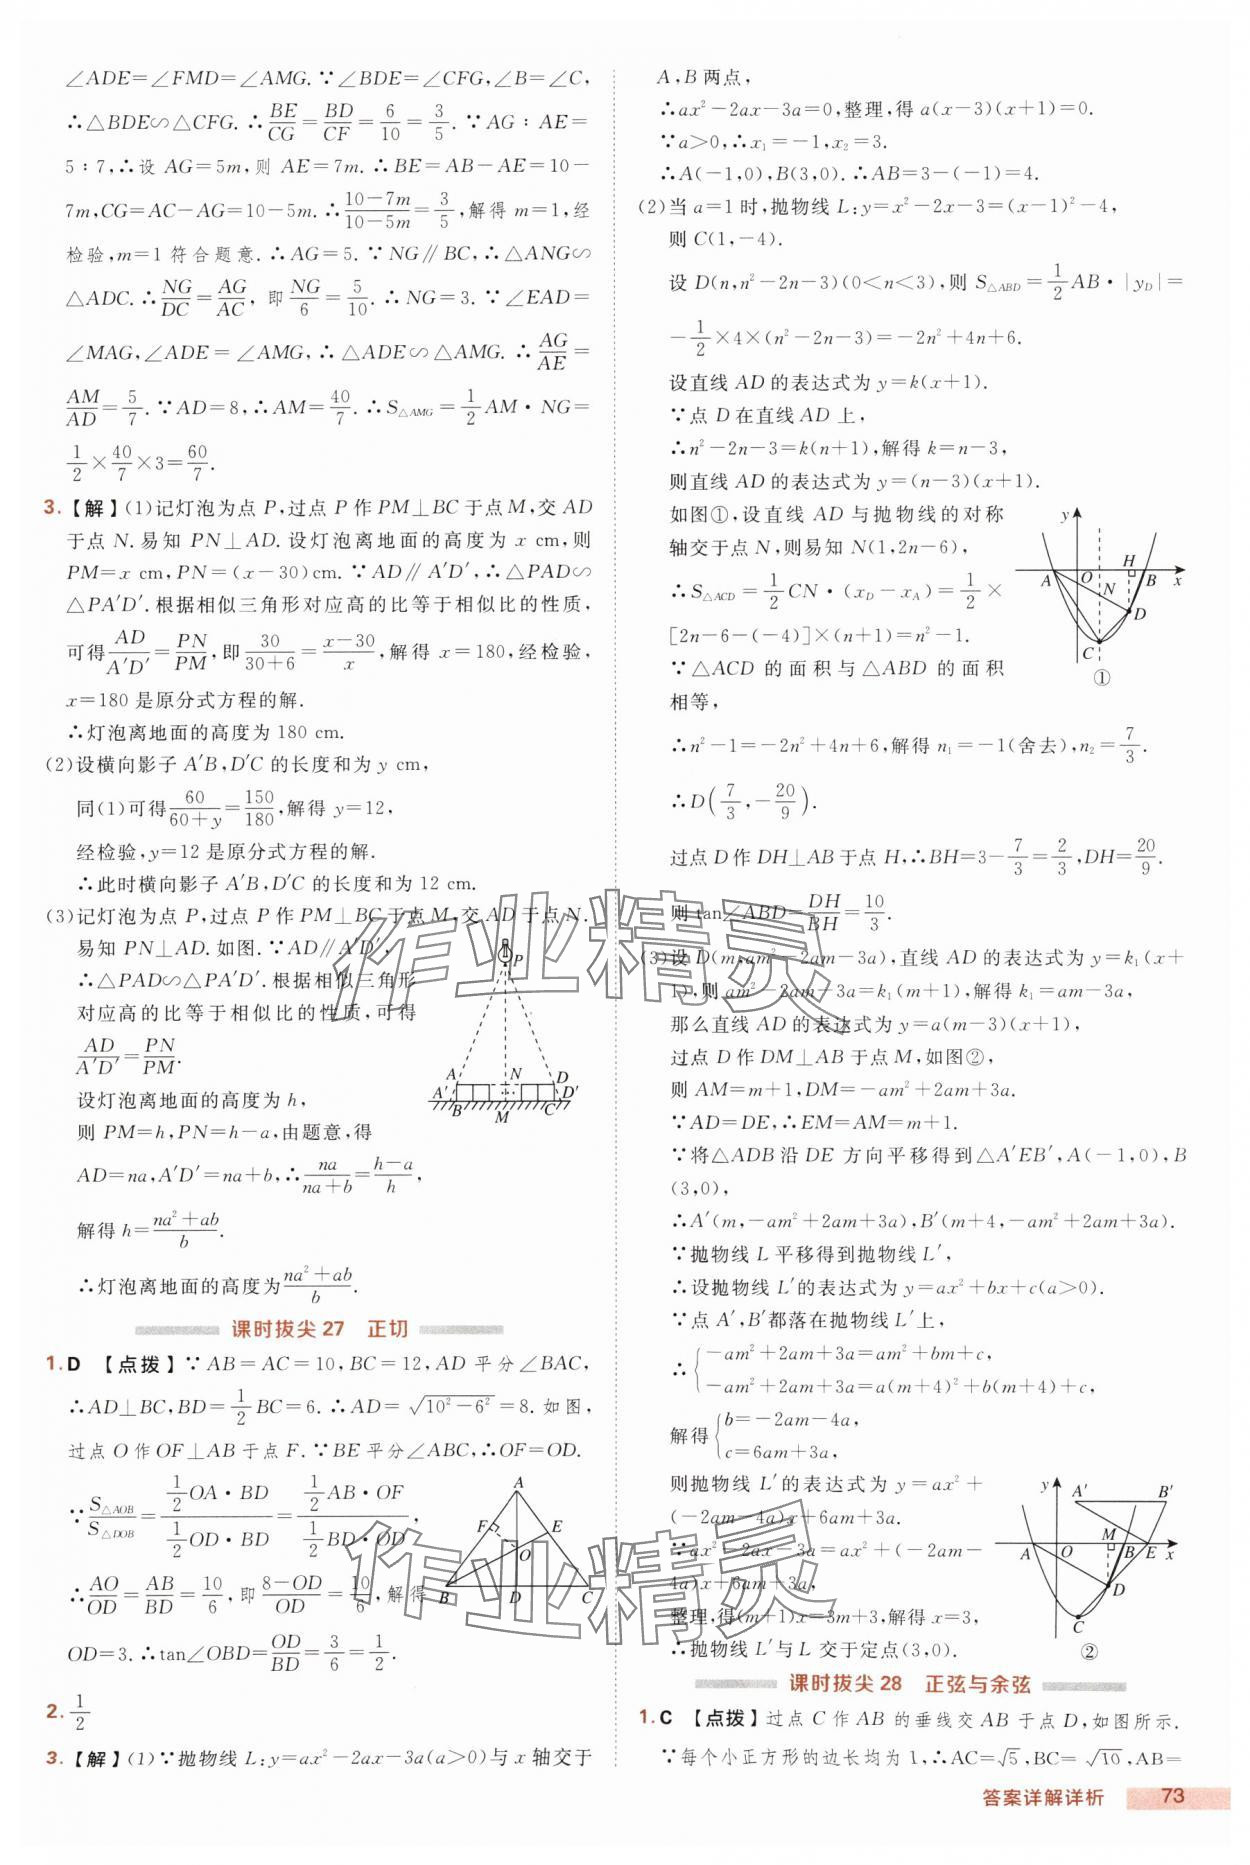 ∠ADE=∠FMD=∠AMG.∵∠BDE=∠CFG,∠B=∠C,
∴△BDE∽△CFG.∴BE/CG=BD/CF=6/10=3/5.∵AG∶AE=
5∶7,∴设 AG=5m,则 AE=7m.∴BE=AB-AE=10-
7m,CG=AC-AG=10-5m.∴(10-7m)/(10-5m)=3/5,解得 m=1,经
检验,m=1 符合题意.∴AG=5.∵NG∥BC,∴△ANG∽
△ADC.∴NG/DC=AG/AC,即NG/6=5/10.∴NG=3.∵∠EAD=
∠MAG,∠ADE=∠AMG,∴△ADE∽△AMG.∴AG/AE=
AM/AD=5/7.∵AD=8,∴AM=40/7.∴S△AMG=1/2AM·NG=
1/2×40/7×3=60/7.
3.【解】(1)记灯泡为点 P,过点 P 作 PM⊥BC 于点 M,交 AD
于点 N.易知 PN⊥AD.设灯泡离地面的高度为 x cm,则
PM=x cm,PN=(x-30)cm.∵AD∥A′D′,∴△PAD∽
△PA′D′.根据相似三角形对应高的比等于相似比的性质,
可得AD/A′D′=PN/PM,即30/(30+6)=(x-30)/x,解得 x=180,经检验,
x=180 是原分式方程的解.
∴灯泡离地面的高度为 180 cm.
(2)设横向影子 A′B,D′C 的长度和为 y cm,
同(1)可得60/(60+y)=150/180,解得 y=12,
经检验,y=12 是原分式方程的解.
∴此时横向影子 A′B,D′C 的长度和为 12 cm.
(3)记灯泡为点 P,过点 P 作 PM⊥BC 于点 M,交 AD 于点 N.
易知 PN⊥AD.如图.∵AD∥A′D′,
∴△PAD∽△PA′D′.根据相似三角形
对应高的比等于相似比的性质,可得
AD/A′D′=PN/PM.
设灯泡离地面的高度为 h,
则 PM=h,PN=h-a,由题意,得
AD=na,A′D′=na+b,∴na/(na+b)=(h-a)/h,
解得 h=(na²+ab)/b.
∴灯泡离地面的高度为(na²+ab)/b.
P
A N D
A′ D′
B M C
课时拔尖 27 正切
1. D 【点拨】∵AB=AC=10,BC=12,AD 平分∠BAC,
∴AD⊥BC,BD=1/2BC=6.∴AD=√(10²-6²)=8.如图,
过点 O 作 OF⊥AB 于点 F.∵BE 平分∠ABC,∴OF=OD.
∵S△AOB/S△DOB=(1/2OA·BD)/(1/2OD·BD)=(1/2AB·OF)/(1/2BD·OD),
∴AO/OD=AB/BD=10/6,即(8-OD)/OD=10/6,解得
OD=3.∴tan∠OBD=OD/BD=3/6=1/2.
A
F E
O
B D C
2. 1/2
3.【解】(1)∵抛物线 L:y=ax²-2ax-3a(a>0)与 x 轴交于
A,B 两点,
∴ax²-2ax-3a=0,整理,得 a(x-3)(x+1)=0.
∵a>0,∴x₁=-1,x₂=3.
∴A(-1,0),B(3,0).∴AB=3-(-1)=4.
(2)当 a=1 时,抛物线 L:y=x²-2x-3=(x-1)²-4,
则 C(1,-4).
设 D(n,n²-2n-3)(0<n<3),则 S△ABD=1/2AB·|yD|=
-1/2×4×(n²-2n-3)=-2n²+4n+6.
设直线 AD 的表达式为 y=k(x+1).
∵点 D 在直线 AD 上,
∴n²-2n-3=k(n+1),解得 k=n-3,
则直线 AD 的表达式为 y=(n-3)(x+1).
如图①,设直线 AD 与抛物线的对称
轴交于点 N,则易知 N(1,2n-6),
∴S△ACD=1/2CN·(xD-xA)=1/2×
[2n-6-(-4)]×(n+1)=n²-1.
∵△ACD 的面积与△ABD 的面积
相等,
∴n²-1=-2n²+4n+6,解得 n₁=-1(舍去),n₂=7/3.
∴D(7/3,-20/9).
y
H
A O N B x
D
C
①
过点 D 作 DH⊥AB 于点 H,∴BH=3-7/3=2/3,DH=20/9.
则 tan∠ABD=DH/BH=10/3.
(3)设 D(m,am²-2am-3a),直线 AD 的表达式为 y=k₁(x+
1),则 am²-2am-3a=k₁(m+1),解得 k₁=am-3a,
那么直线 AD 的表达式为 y=a(m-3)(x+1),
过点 D 作 DM⊥AB 于点 M,如图②,
则 AM=m+1,DM=-am²+2am+3a.
∵AD=DE,∴EM=AM=m+1.
∵将△ADB 沿 DE 方向平移得到△A′EB′,A(-1,0),B
(3,0),
∴A′(m,-am²+2am+3a),B′(m+4,-am²+2am+3a).
∵抛物线 L 平移得到抛物线 L′,
∴设抛物线 L′的表达式为 y=ax²+bx+c(a>0).
∵点 A′,B′都落在抛物线 L′上,
∴{-am²+2am+3a=am²+bm+c,
-am²+2am+3a=a(m+4)²+b(m+4)+c,
解得{b=-2am-4a,
c=6am+3a,
则抛物线 L′的表达式为 y=ax²+
(-2am-4a)x+6am+3a.
∵ax²-2ax-3a=ax²+(-2am-
4a)x+6am+3a,
整理,得(m+1)x=3m+3,解得 x=3,
∴抛物线 L′与 L 交于定点(3,0).
y A′ B′
M
A O B E x
D
C
②
课时拔尖 28 正弦与余弦
1. C 【点拨】过点 C 作 AB 的垂线交 AB 于点 D,如图所示.
∵每个小正方形的边长均为 1,∴AC=√5,BC=√10,AB=
作业精灵
作业精灵
答案详解详析 73